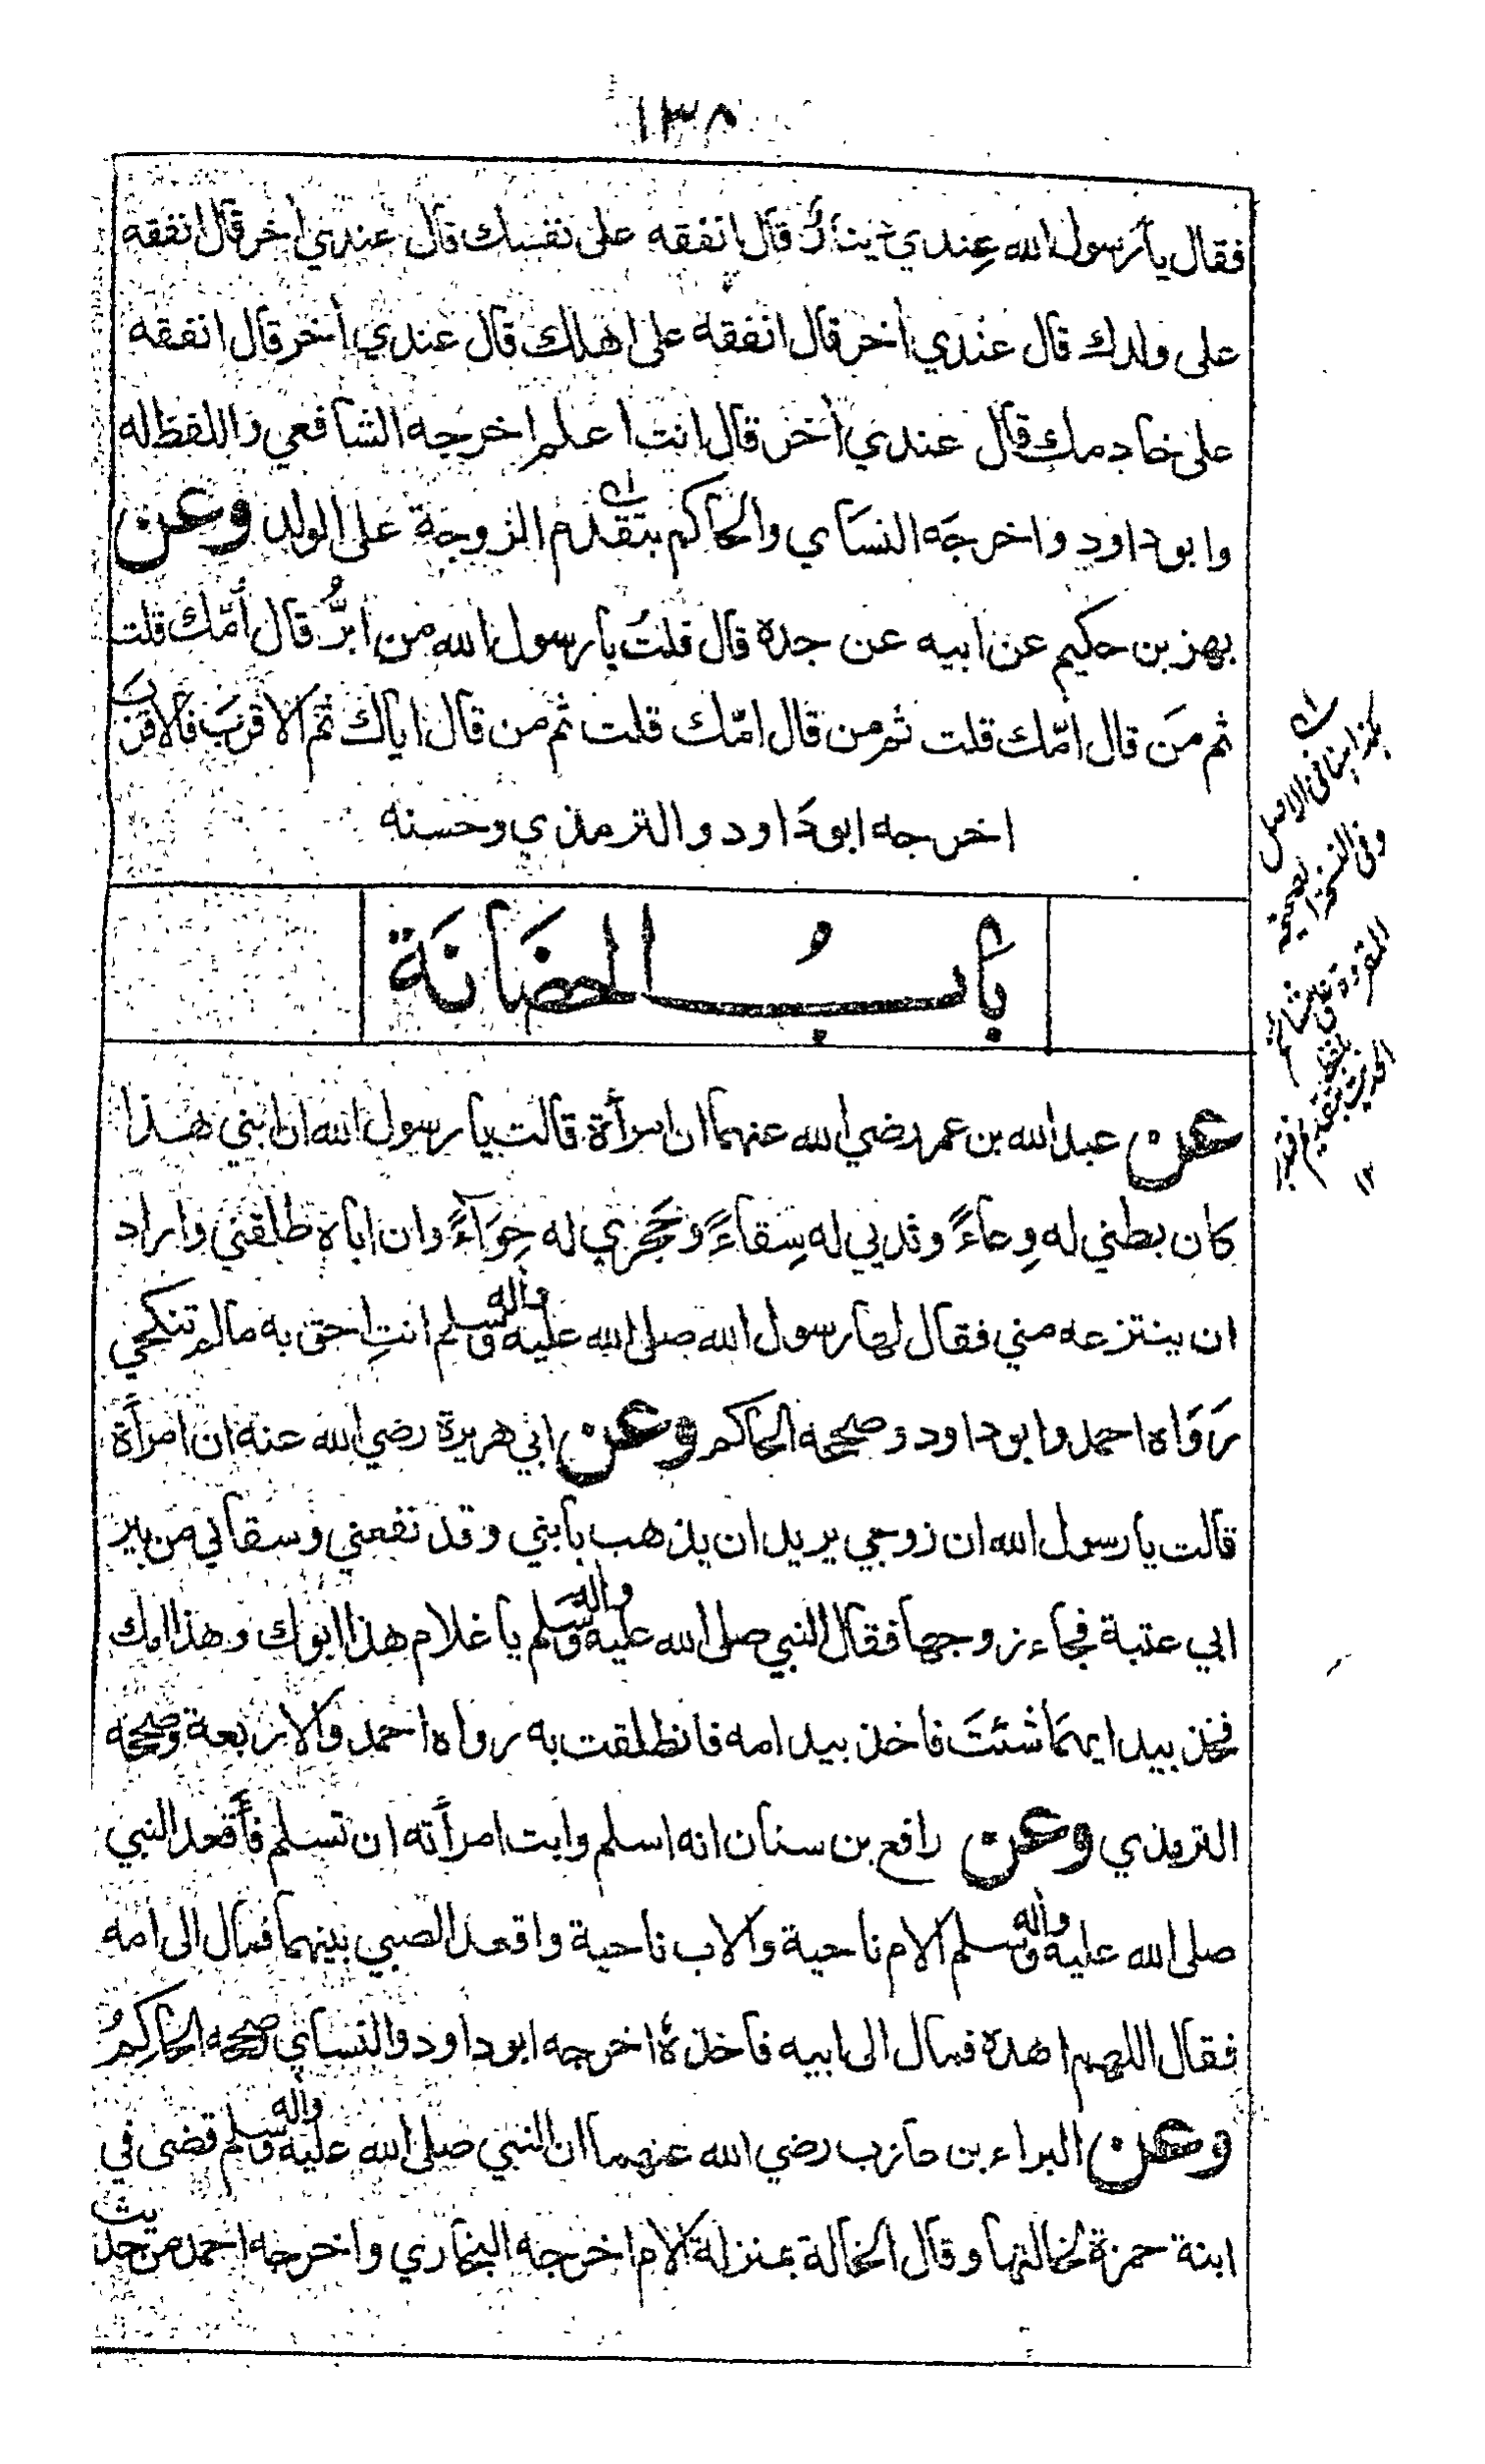 ١٣٨
فقال يا رسول الله عِندي دينارٌ قال انفقه على نفسك قال عندي أخر قال انفقه
على ولدك قال عندي أخر قال انفقه على اهلك قال عندي أخر قال انفقه
على خادمك قال عندي أخر قال انت اعلم اخرجه الشافعي واللفظ له
وابو داود واخرجَه النسَاي والحاكم بتقدم الزوجة على الولد وعن
بهز بن حكيم عن ابيه عن جده قال قلتُ يا رسول الله من ابرُّ قال أُمّك قلت
ثم مَن قال امّك قلت ثم من قال امّك قلت ثم من قال اباك ثم الاقربَ فالاقربَ
اخرجه ابو دَاود والترمذي وحسنه
بابُ الحضَانَة
عن عبد الله بن عمر رضي الله عنهما ان امرأة قالت يا رسول الله ان ابني هذا
كان بطني له وِعاءً وثديي له سِقاءً وحَجري له حِوَآءً وان اباه طلقني واراد
ان ينتزعه مني فقال لها رسول الله صلى الله عليه وآله وسلم انتِ احق به مالم تنكحي
رَوَاه احمد وابو داود وصححه الحاكم وعن ابي هريرة رضي الله عنه ان امرأة
قالت يا رسول الله ان زوجي يريد ان يذهب بابني وقد نفعني وسقاني من بير
ابي عتبة فجاء زوجها فقال النبي صلى الله عليه وآله وسَلم يا غلام هذا ابوك وهذا امك
فخذ بيد ايهمَا شئتَ فاخذ بيد امه فانطلقت به رواه احمد والاربعة وصححه
الترمذي وعن رافع بن سنان انه اسلم وابت امرأته ان تسلم فأقعد النبي
صلى الله عليه وآله وسلم الام ناحية والاب ناحية واقعد الصبي بينهما فمال الى امه
فقال اللهم اهده فمال الى ابيه فاخذهُ اخرجه ابو داود والنساي صححه الحاكِمُ
وعن البراء بن عازب رضي الله عنهما ان النبي صلى الله عليه وآله وسلم قضى في
ابنة حمزة لخالتها وقال الخالة بمنزلة الام اخرجه البخاري واخرجه احمد من حديث
هكذا هنا في الاصل
وفي النسخ
المقروة على
الحديث بتقديم
١٢